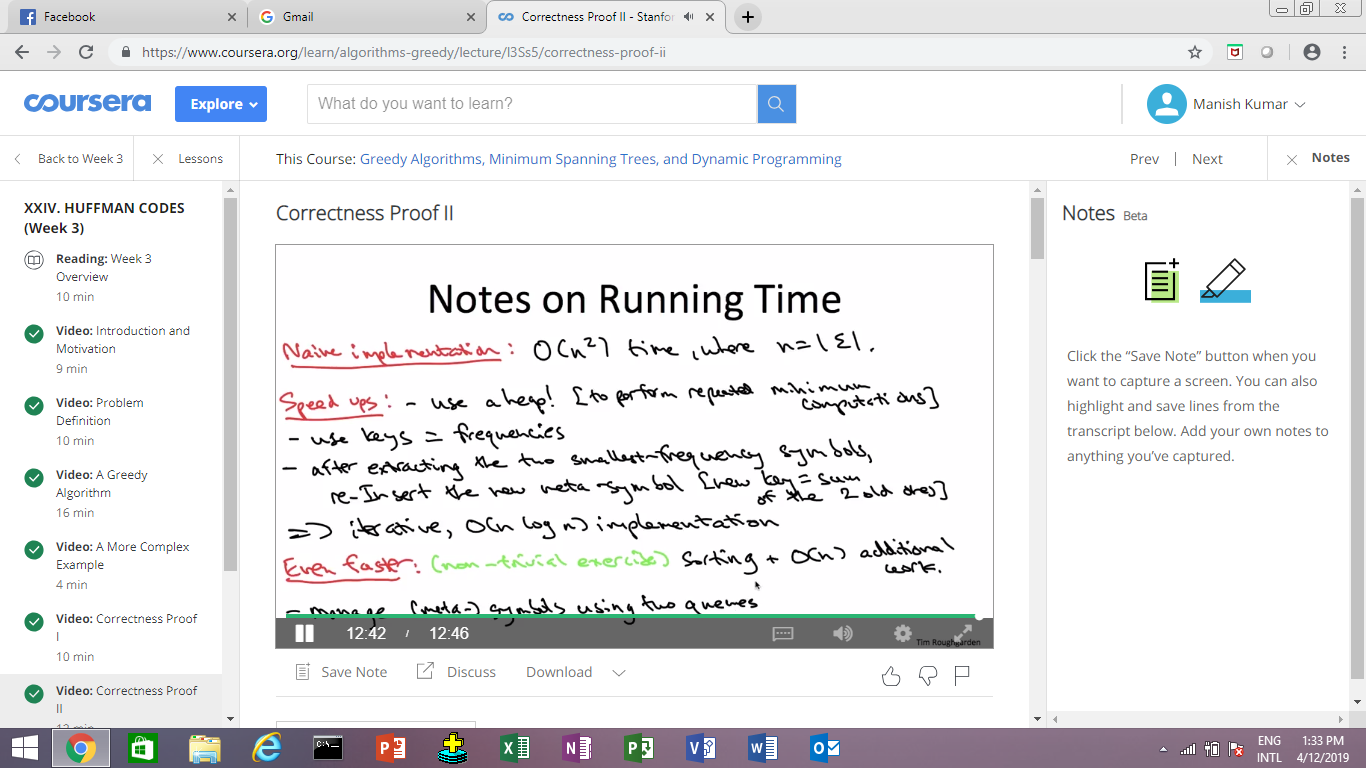 Facebook
Gmail
Correctness Proof II - Stanfor
https://www.coursera.org/learn/algorithms-greedy/lecture/I3Ss5/correctness-proof-ii
coursera
Explore
What do you want to learn?
Manish Kumar
Back to Week 3
Lessons
This Course: Greedy Algorithms, Minimum Spanning Trees, and Dynamic Programming
Prev
Next
Notes
XXIV. HUFFMAN CODES
(Week 3)
Reading: Week 3
Overview
10 min
Video: Introduction and
Motivation
9 min
Video: Problem
Definition
10 min
Video: A Greedy
Algorithm
16 min
Video: A More Complex
Example
4 min
Video: Correctness Proof
I
10 min
Video: Correctness Proof
II
Correctness Proof II
Notes on Running Time
Naive implementation: O(n²) time, where n=|Σ|.
Speed ups: - use a heap! [to perform repeated minimum
computations]
- use keys = frequencies
- after extracting the two smallest-frequency symbols,
re-Insert the new meta-symbol [new key = sum
of the 2 old ones]
=> iterative, O(n log n) implementation
Even faster: (non-trivial exercise) sorting + O(n) additional
work.
- manage (meta-) symbols using two queues
12:42 / 12:46
Tim Roughgarden
Save Note
Discuss
Download
Notes Beta
Click the “Save Note” button when you
want to capture a screen. You can also
highlight and save lines from the
transcript below. Add your own notes to
anything you’ve captured.
ENG
INTL
1:33 PM
4/12/2019